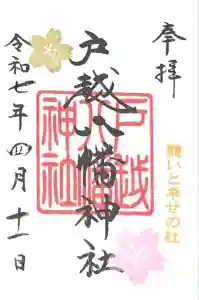 奉拝
願いと幸せの社
戸越八幡神社
戸越
八幡
神社
令和七年四月十一日